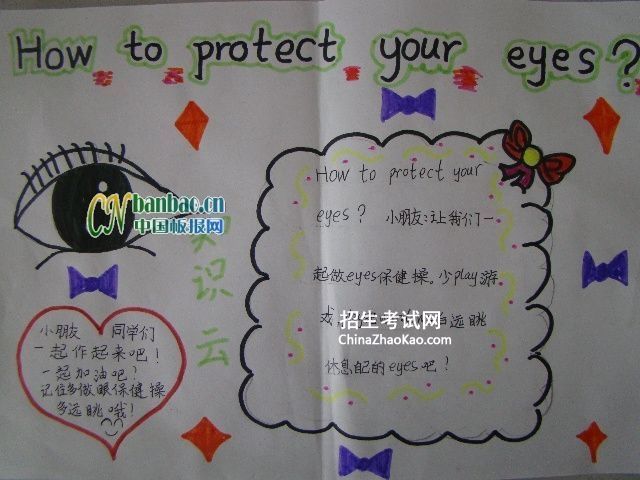 How to protect your eyes?
CNbanbao.cn
中国板报网
识云
How to protect your
eyes? 小朋友:让我们一
起做eyes保健操。少play游
戏
远眺
招生考试网
ChinaZhaoKao.com
休息自己的eyes吧!
小朋友 同学们
一起作起来吧!
一起加油吧?
记住多做眼保健操
多远眺哦!